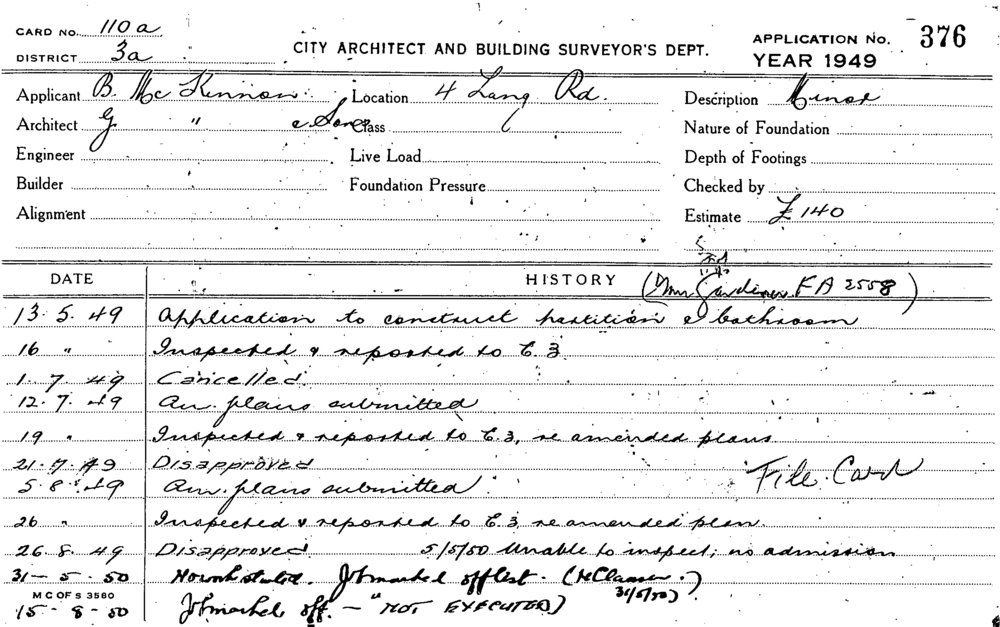 CARD NO. 110a
DISTRICT 3a
CITY ARCHITECT AND BUILDING SURVEYOR'S DEPT.
APPLICATION No. 376
YEAR 1949
Applicant B. McKinnon Location 4 Lang Rd. Description Minor
Architect G " & Sons Class Nature of Foundation
Engineer Live Load Depth of Footings
Builder Foundation Pressure Checked by
Alignment Estimate £140
DATE HISTORY (Gardiner FA 2558)
13.5.49 Application to construct partition & bathroom
16 " Inspected & reported to C.3.
1.7.49 Cancelled
12.7.49 Am. plans submitted
19 " Inspected & reported to C.3, re amended plans
21.7.49 Disapproved
File Card
5.8.49 Am. plans submitted
26 " Inspected & reported to C.3, re amended plan.
26.8.49 Disapproved 5/5/50 Unable to inspect; no admission
31-5-50 Job marked off list. 31/5/50)
M C OF S 3580
15-8-50 Job marked off. - "NOT EXECUTED)